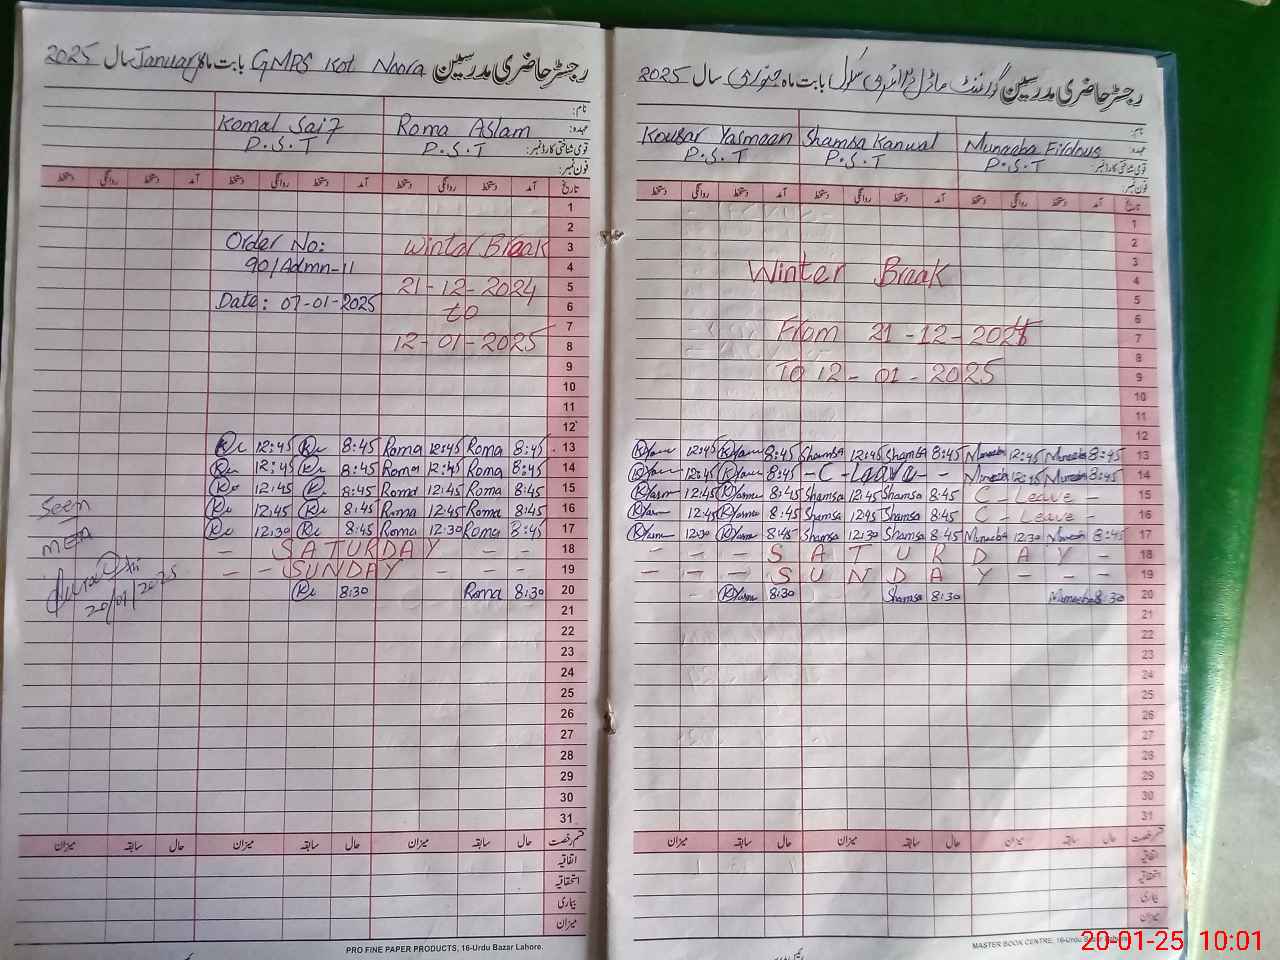 رجسٹر حاضری مدرسین GMPS Kot Noora بابت ماہ January سال 2025
نام:
عہدہ: Roma Aslam Komal Saif
قومی شناختی کارڈ نمبر: P.S.T P.S.T
فون نمبر:
تاریخ آمد دستخط روانگی دستخط آمد دستخط روانگی دستخط آمد دستخط روانگی دستخط
1
2
Order No: Winter Break 3
90/Admn-II 4
21-12-2024 5
Date: 07-01-2025 to 6
7
12-01-2025 8
9
10
11
12
12:45 8:45 Roma 12:45 Roma 8:45 13
12:45 8:45 Roma 12:45 Roma 8:45 14
12:45 8:45 Roma 12:45 Roma 8:45 15
Seen 12:45 8:45 Roma 12:45 Roma 8:45 16
12:30 8:45 Roma 12:30 Roma 8:45 17
- SATURDAY - - 18
- - SUNDAY - - - 19
8:30 Roma 8:30 20
20/01/2025
21
22
23
24
25
26
27
28
29
30
31
قسم رخصت حال سابقہ میزان حال سابقہ میزان حال سابقہ میزان
اتفاقیہ
استحقاقیہ
بیماری
میزان
PRO FINE PAPER PRODUCTS, 16-Urdu Bazar Lahore.
رجسٹر حاضری مدرسین گورنمنٹ ماڈل پرائمری سکول بابت ماہ جنوری سال 2025
نام:
Kousar Yasmeen Shamsa Kanwal Muneeba Firdous عہدہ
P.S.T P.S.T P.S.T قومی شناختی کارڈ نمبر:
فون نمبر:
تاریخ آمد دستخط روانگی دستخط آمد دستخط روانگی دستخط آمد دستخط روانگی دستخط
1
2
3
Winter Break 4
5
6
From 21-12-2024 7
8
To 12-01-2025 9
10
11
12
12:45 8:45 Shamsa 12:45 Shamsa 8:45 Muneeba 12:45 Muneeba 8:45 13
12:45 8:45 - C - Leave - - Muneeba 12:45 Muneeba 8:45 14
12:45 8:45 Shamsa 12:45 Shamsa 8:45 C - Leave - 15
12:45 8:45 Shamsa 12:45 Shamsa 8:45 C - Leave - 16
12:30 8:45 Shamsa 12:30 Shamsa 8:45 Muneeba 12:30 8:45 17
- - - SATURDAY - - 18
- - - SUNDAY - - - 19
8:30 Shamsa 8:30 Muneeba 8:30 20
21
22
23
24
25
26
27
28
29
30
31
قسم رخصت حال سابقہ میزان حال سابقہ میزان حال سابقہ میزان
اتفاقیہ
استحقاقیہ
بیماری
میزان
MASTER BOOK CENTRE, 16-Urdu Bazar
20-01-25 10:01